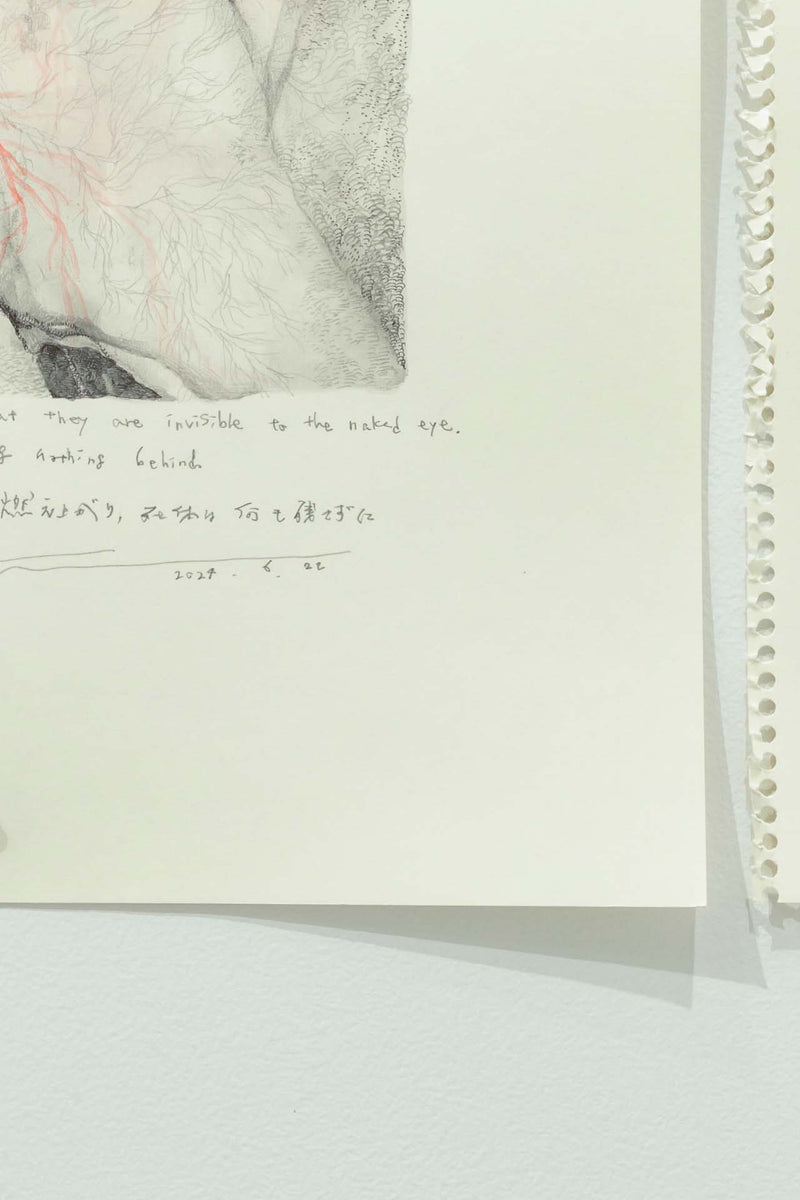 at they are invisible to the naked eye.
g nothing behind
燃え上がり, 死体は 何も残さずに
2024. 6. 22